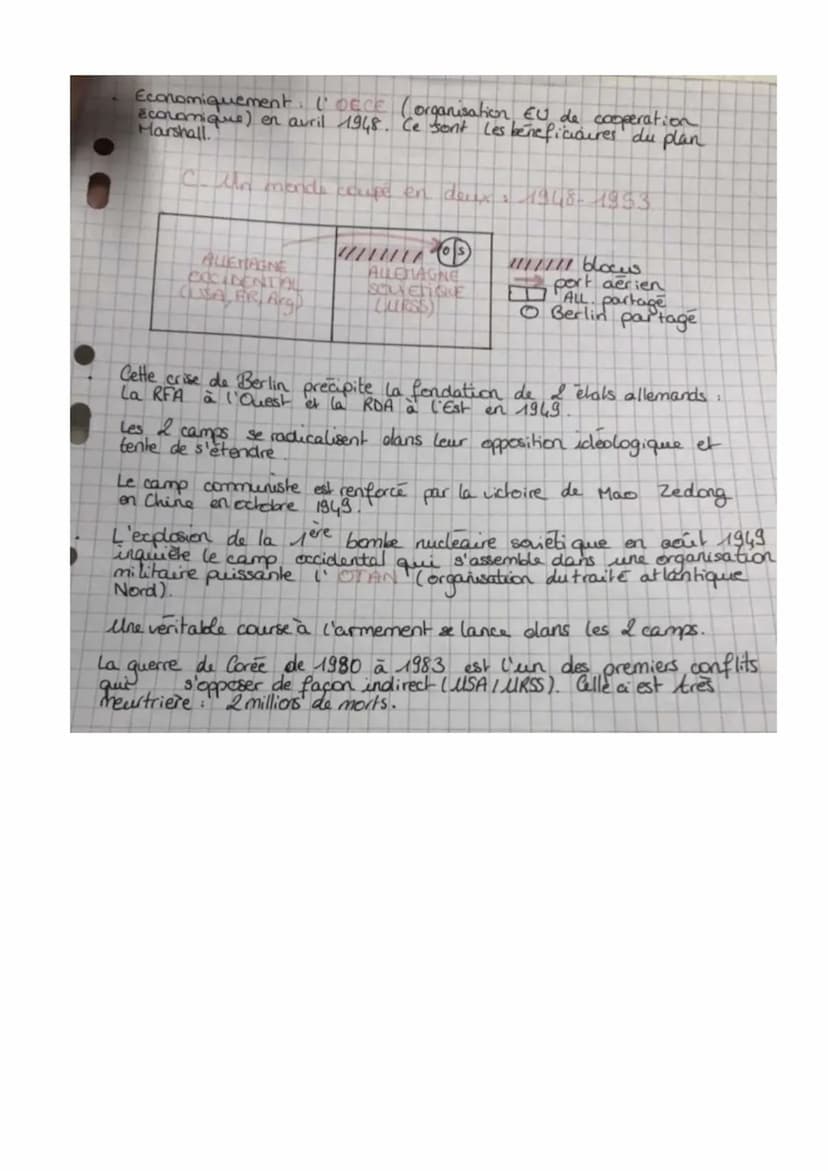 Economiquement : l'OECE (organisation EU de coopération
économique) en avril 1948. Ce sont les bénéficiaires du plan
Marshall.
C- Un monde coupé en deux : 1948-1953
O S
ALLEMAGNE
OCCIDENTAL
(USA, FR, Arg)
ALLEMAGNE
SOVIETIQUE
(URSS)
blocus
port aérien
All. partagé
Berlin partagé
Cette crise de Berlin précipite la fondation de 2 états allemands :
La RFA à l'Ouest et la RDA à l'Est en 1949.
Les 2 camps se radicalisent dans leur opposition idéologique et
tente de s'étendre.
Le camp communiste est renforcé par la victoire de Mao Zedong
en Chine en octobre 1949.
L'explosion de la 1ère bombe nucléaire soviétique en août 1949
inquiète le camp occidental qui s'assemble dans une organisation
militaire puissante l'OTAN (organisation du traité atlantique
Nord).
Une véritable course à l'armement se lance dans les 2 camps.
La guerre de Corée de 1980 à 1983 est l'un des premiers conflits
qui s'opposer de façon indirect (USA / URSS). Celle ci est très
meurtrière : 2 millions de morts.